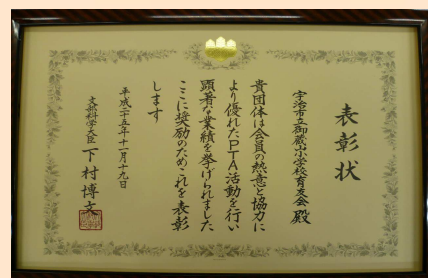 表彰状
宇治市立御蔵山小学校育友会 殿
貴団体は会員の熱意と協力に
より優れたPTA活動を行い
顕著な業績を挙げられました
ここに奨励のためこれを表彰
します
平成二十五年十一月十九日
文部科学大臣 下村博文